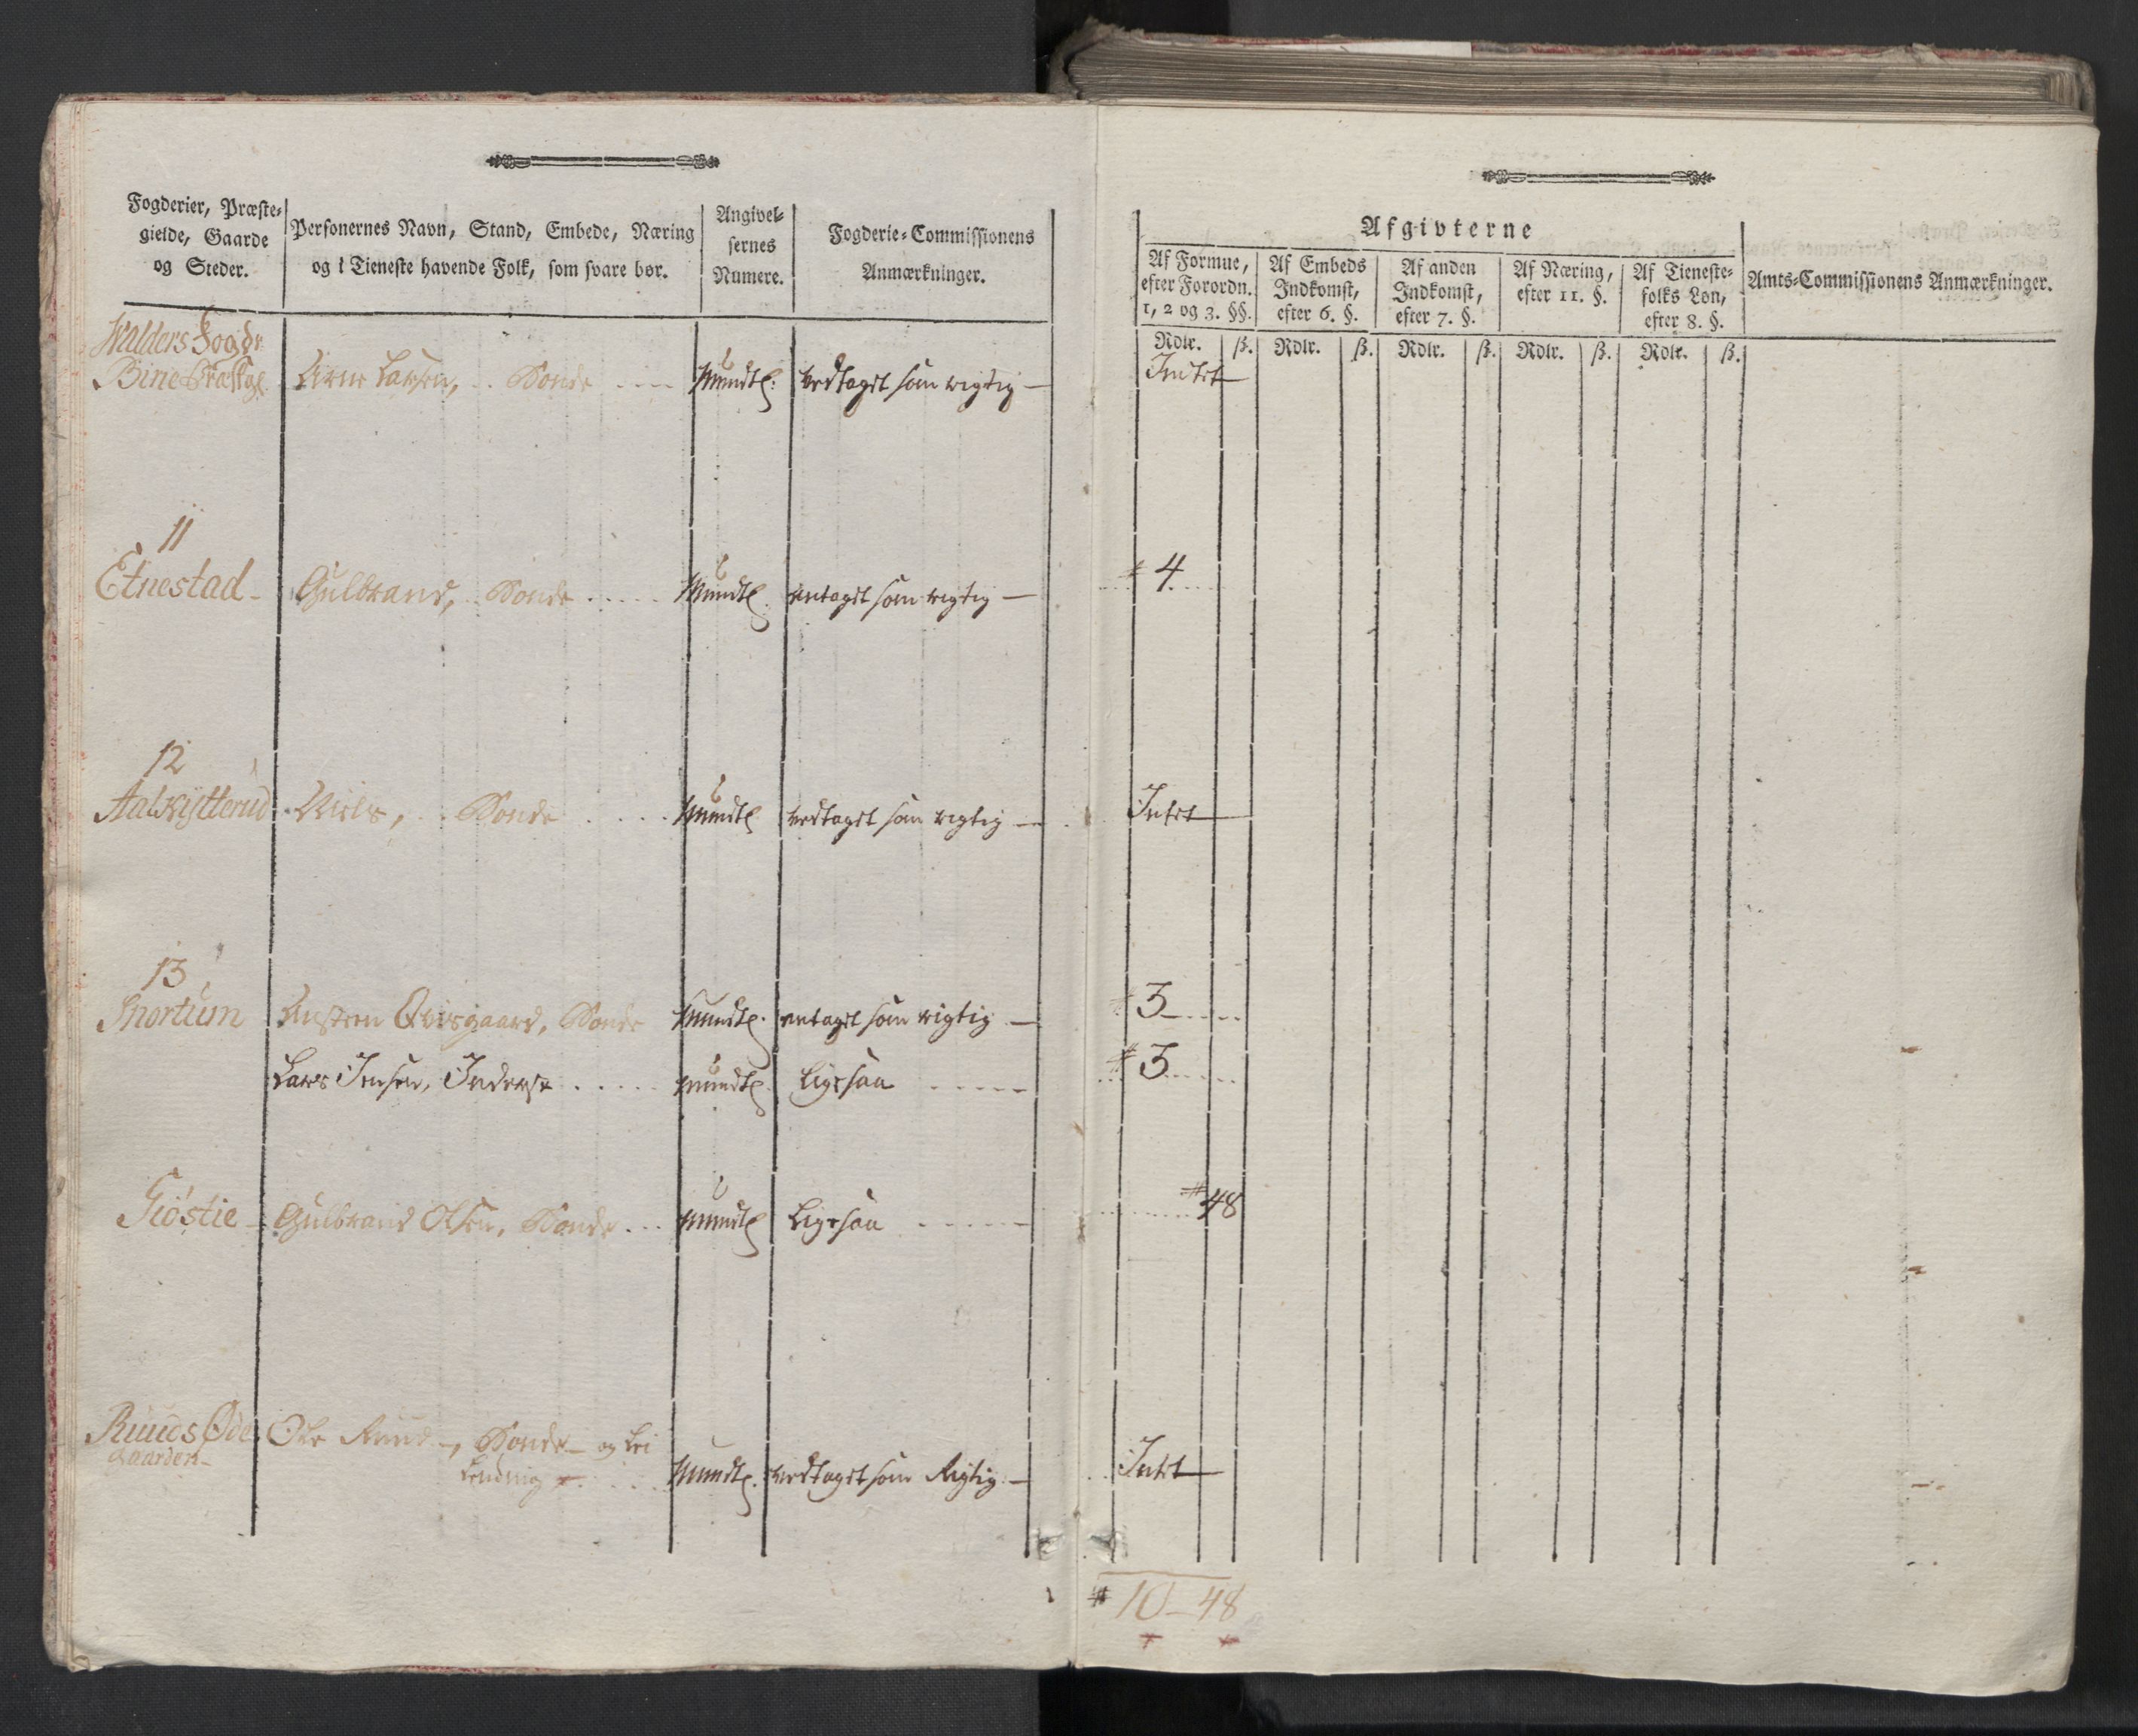 Fogderier, Præste-
gielde, Gaarde
og Steder.
Personernes Navn, Stand, Embede, Næring
og i Tieneste havende Folk, som svare bør.
Angivel-
sernes
Numere.
Fogderie-Commissionens
Anmærkninger.
Walders Fogdr
Bonde Mundtl. vedtaget som rigtig —
11
Etnestad - Gulbrand, Bonde Mundtl. antaget som rigtig —
12
Niels, Bonde Mundtl vedtaget som rigtig —
13
Østen Bonde Mundtl. antaget som rigtig —
Lars Jensen, Inderst Mundtl Ligesaa
Giöstie - Gulbrand Olsen, Bonde Mundtl Ligesaa
Ruuds Øde Ole Ruud -, Bonde - og Lei
gaarden - Lending Mundtl. vedtaget som Rigtig —
Afgivterne
Af Formue,
efter Forordn.
1, 2 og 3. §§.
Af Embeds
Indkomst,
efter 6. §.
Af anden
Indkomst,
efter 7. §.
Af Næring,
efter 11. §.
Af Tieneste-
folks Løn,
efter 8. §.
Amts-Commissionens Anmærkninger.
Rdlr. ß. Rdlr. ß. Rdlr. ß. Rdlr. ß. Rdlr. ß.
Intet
4
Intet
3
3
48
Intet
10 - 48